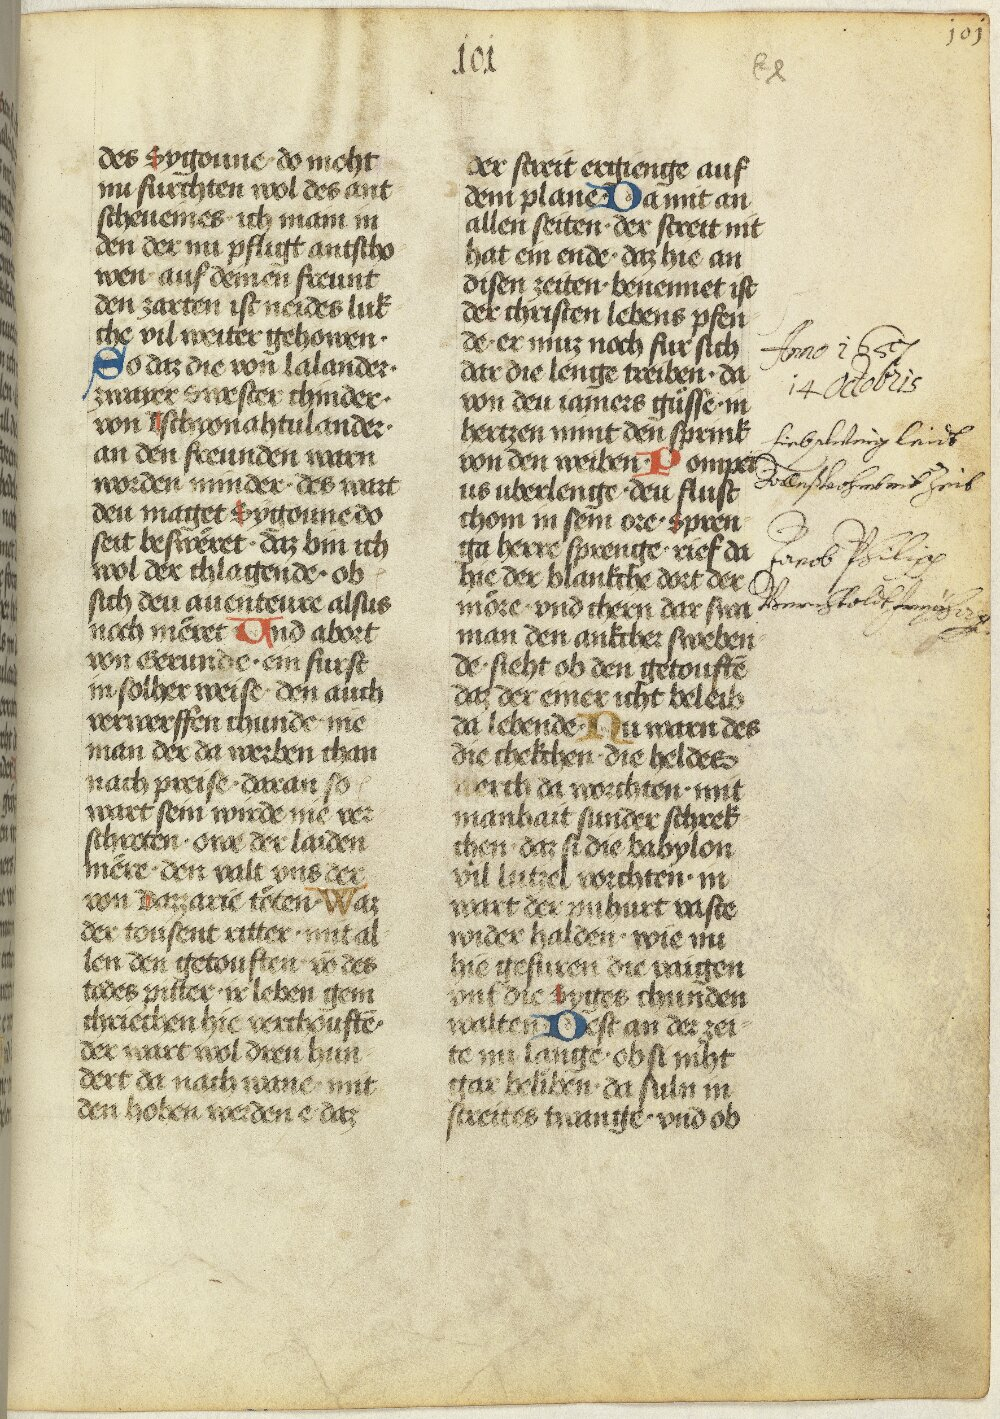 101
101
des Sygoune· do meht
nu furchten wol des ant
scheuemes· ich mam in
den der nu pfligt antscho
wen· auf deinen freunt
den zarten ist neides luk
che vil weiter gehowen·
So daz die von lalander·
zwaier swester chinder·
von Tschyonahtulander·
an den freunden warn
worden minder· des wart
deu maget Sygoune do
seit beswêret· daz bin ich
wol der chlagende· ob
sich deu auenteure alsus
noch mêret Und abort
von Gerunde· ein furst
in solher weise· den auch
verwerffen chunde nie
man der da werben chan
nach preise· daran so
wart sein wirde nie ver
schroten· owe der laiden
mêre· den valt vns der
von Lazzarie tôten· Waz
der tousent ritter· mit al
len den getouften· vô des
todes pitter· ir leben gem
chriechen hie verchouftē·
der wart wol dreu hun
dert da nach wane· mit
den hohen werden e daz
der streit ergienge auf
dem plane· Da mit an
allen seiten· der streit nit
hat ein ende· daz hie an
disen zeiten· benennet ist
der christen lebens pfen
de· er muz noch fur sich
dar die lenge treiben· da
von deu iamers gûsse· in
hertzen nimt den sprink
von den weiben· Pompei
us uberlenge· deu flust
chom in sein ore· spren
ga herre sprenge· rief da
hie der blankche dort der
môre· vnd chern dar swa
man den ankcher sweben
de· sieht ob den getouftē
daz der einer icht beleib
da lebende· Nu warn des
die chekchen· die heldes
werch da worchten· mit
manhait sunder schrek
chen· daz si die babylon
vil lutzel vorchten· in
wart der puhurt vaste
wider halden· wie nu
hie gefuren die vaigen
vnt die Syges chunden
walten· Dest an der zei
te nu lange· ob si niht
gar beliben· da suln in
streites twange· vnd ob
Anno 1657
14 Octobris
Jacob Philipp